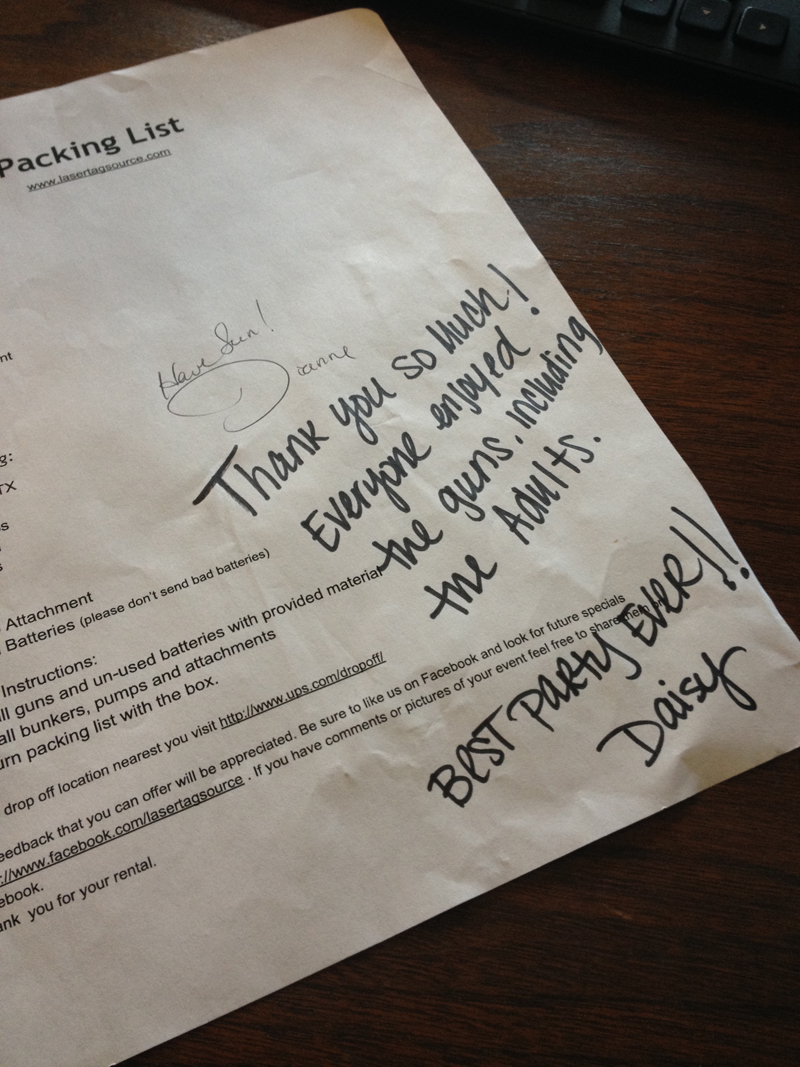 Packing List
www.lasertagsource.com
nt
Have fun!
Dianne
Thank you so much!
Everyone enjoyed
the guns, including
the Adults.
g:
TX
s
s
Attachment
Batteries (please don't send bad batteries)
Instructions:
ll guns and un-used batteries with provided material
all bunkers, pumps and attachments
urn packing list with the box.
drop off location nearest you visit http://www.ups.com/dropoff/
eedback that you can offer will be appreciated. Be sure to like us on Facebook and look for future specials
://www.facebook.com/lasertagsource . If you have comments or pictures of your event feel free to share
ebook.
ank you for your rental.
BEST PARTY EVER!!
Daisy